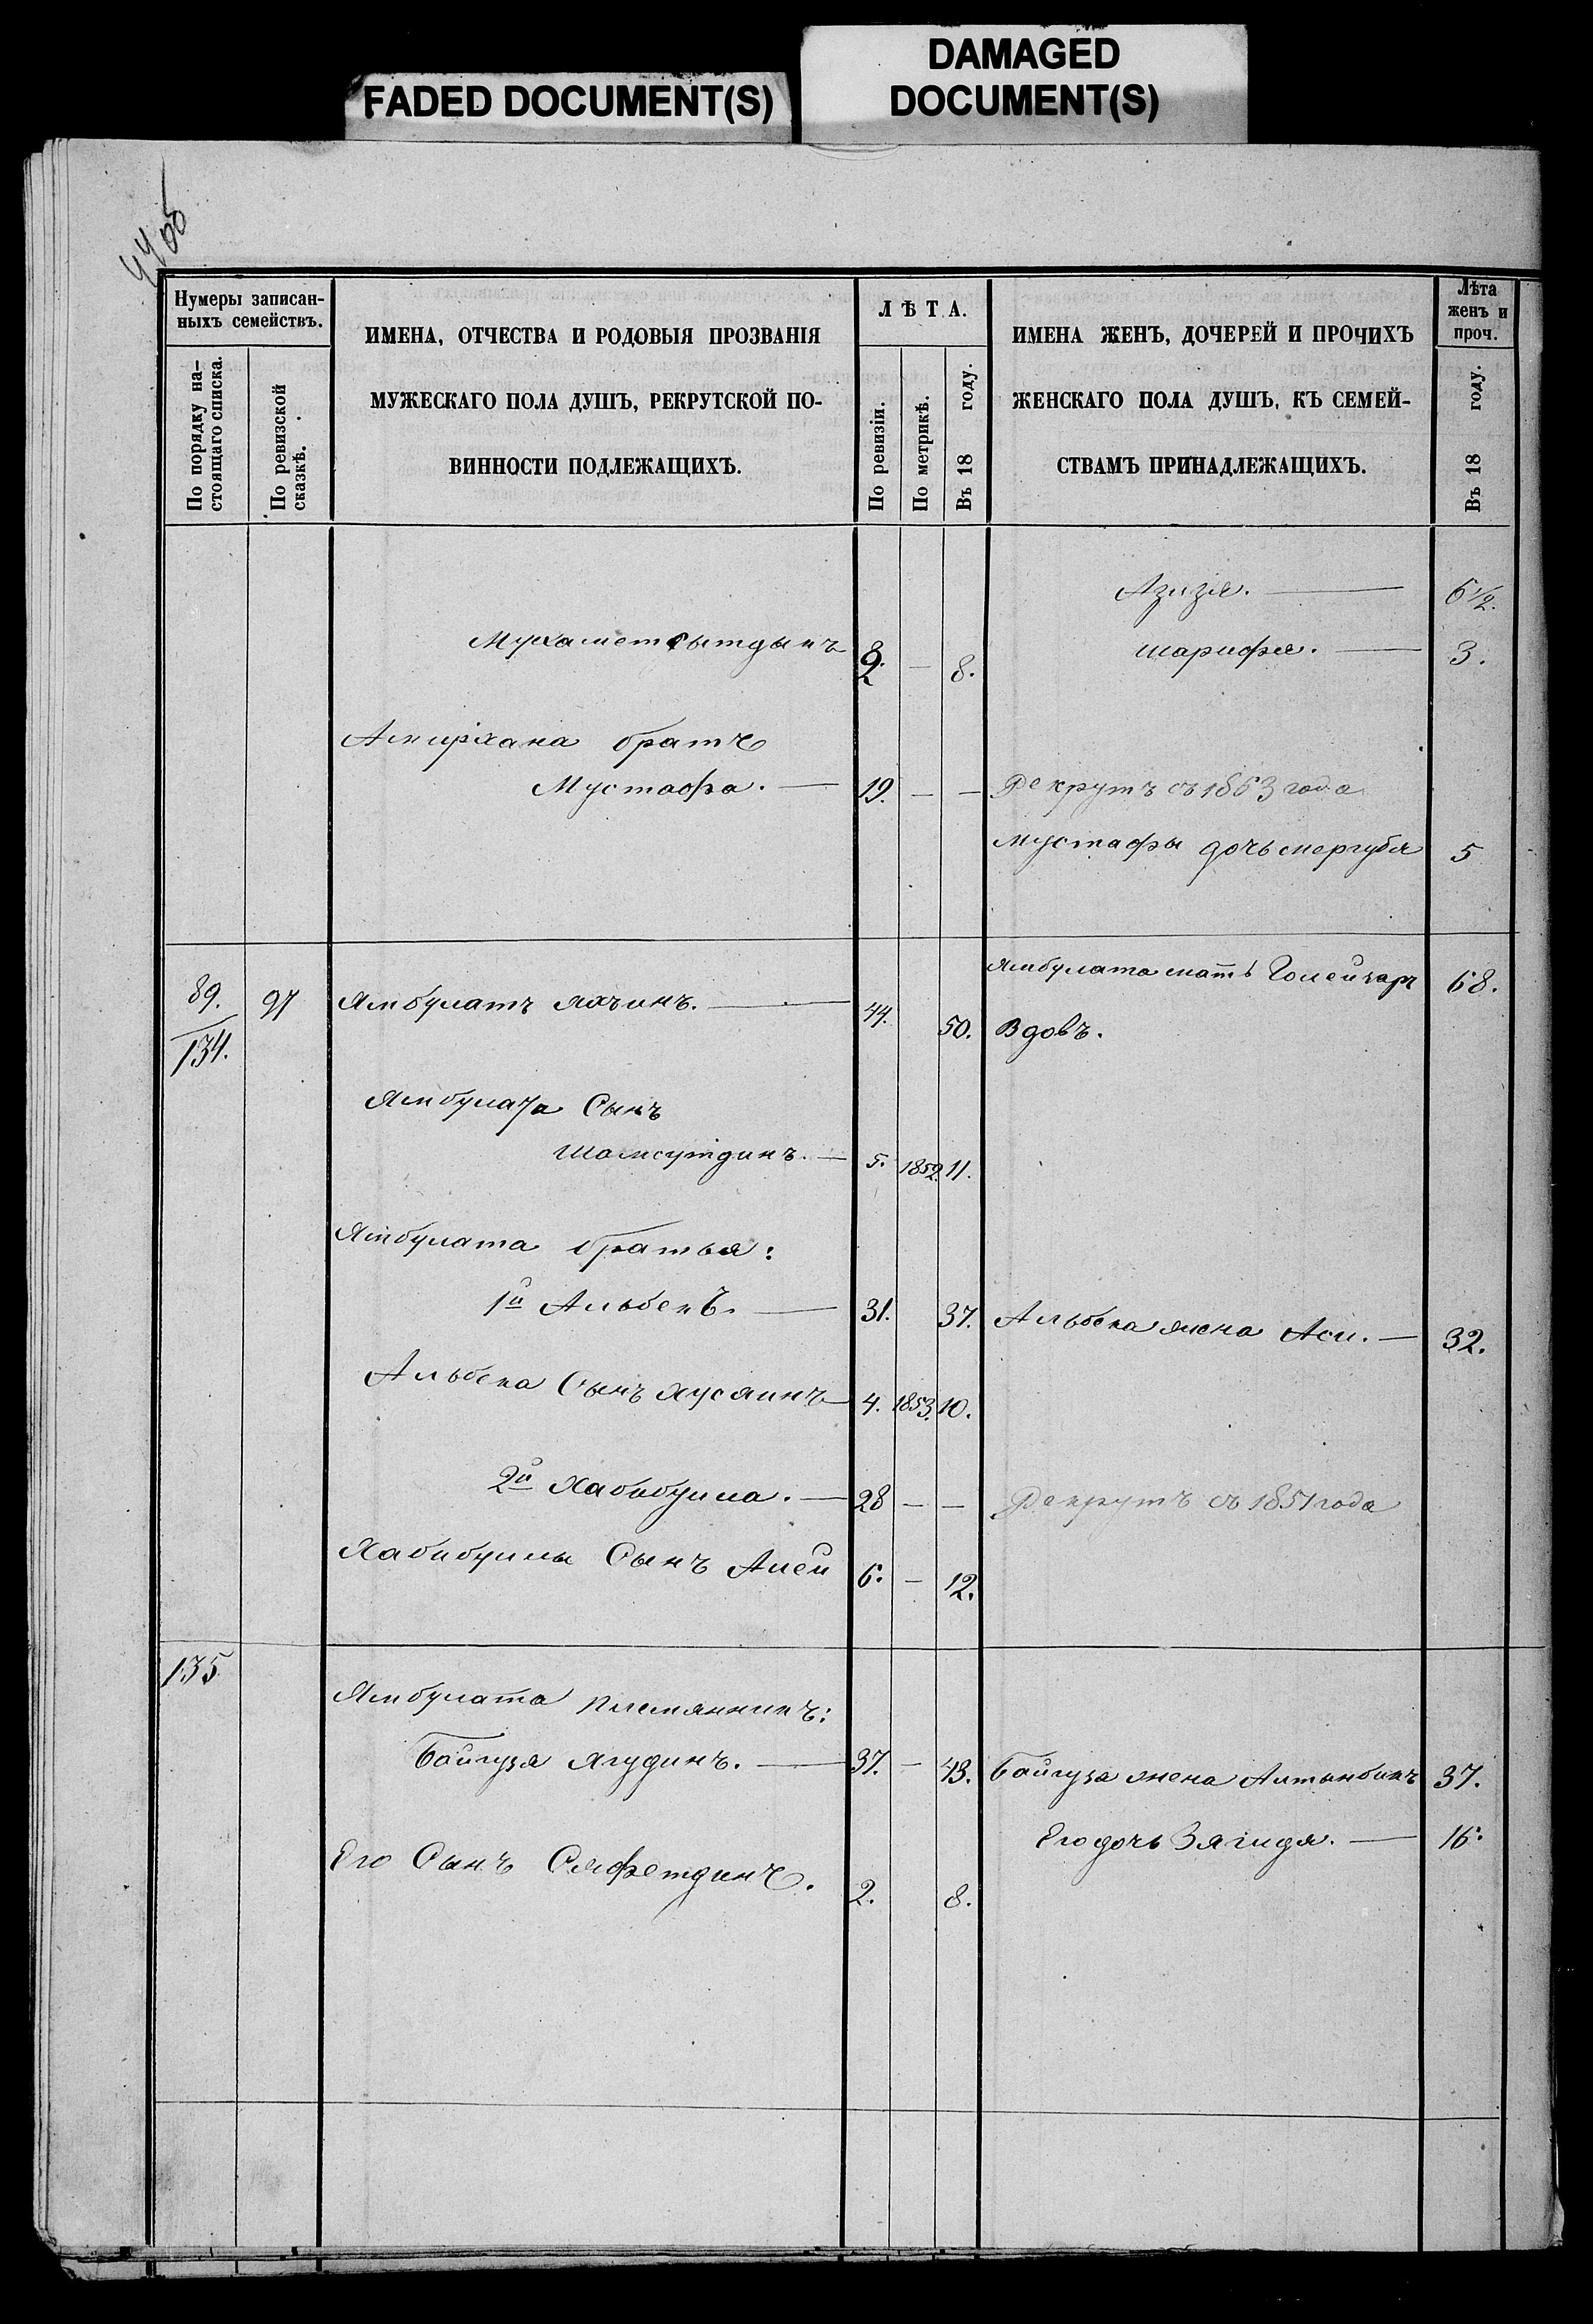 FADED DOCUMENT(S)
DAMAGED
DOCUMENT(S)
Нумеры записан-
ныхъ семействъ.
По порядку на-
стоящаго списка.
По ревизской
сказкѣ.
ИМЕНА, ОТЧЕСТВА И РОДОВЫЯ ПРОЗВАНІЯ
МУЖЕСКАГО ПОЛА ДУШЪ, РЕКРУТСКОЙ ПО-
ВИННОСТИ ПОДЛЕЖАЩИХЪ.
ЛѢТА.
По ревизіи.
По метрикѣ.
Въ 18 году.
ИМЕНА ЖЕНЪ, ДОЧЕРЕЙ И ПРОЧИХЪ
ЖЕНСКАГО ПОЛА ДУШЪ, КЪ СЕМЕЙ-
СТВАМЪ ПРИНАДЛЕЖАЩИХЪ.
Лѣта
женъ и
проч.
Въ 18 году.
Азизя. — 6 1/2.
Мухаметсытдынъ 2. — 8. шарифя. — 3.
Амирхана братъ
Мустафа. — 19. — — Рекрутъ съ 1853 года
Мустафы дочь мергубя 5
Ямбулата мать 68.
89. 97 Ямбулатъ яхъинъ. — 44. 50. Вдовъ.
134.
Ямбулата Сынъ
Шамсутдинъ. — 5. 1852. 11.
Ямбулата братья:
1й Альбекъ. — 31. 37. Альбека жена Аси. — 32.
Альбека Сынъ хусяинъ 4. 1853. 10.
2й Хабибулла. — 28 — — Рекрутъ съ 1851 года
Хабибуллы Сынъ Алей 6. — 12.
135
Ямбулата племянникъ:
Байгузя ягудинъ. — 37. — 43. Байгузя жена Алтынбикъ 37.
Его дочь Зягидя. — 16.
Его Сынъ Сяфетдинъ. 2. 8.